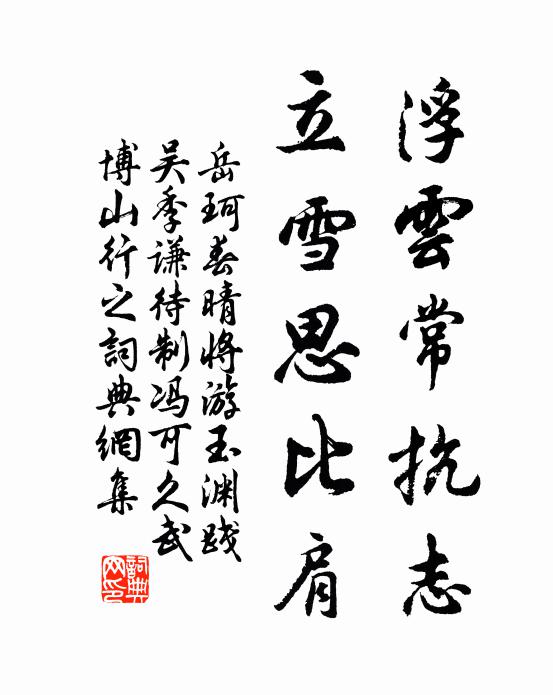 浮雲常抗志
立雪思比肩
岳珂春晴將游玉渊践
吴季谦待制冯可久武
博山行之詞典網集
詞典网印